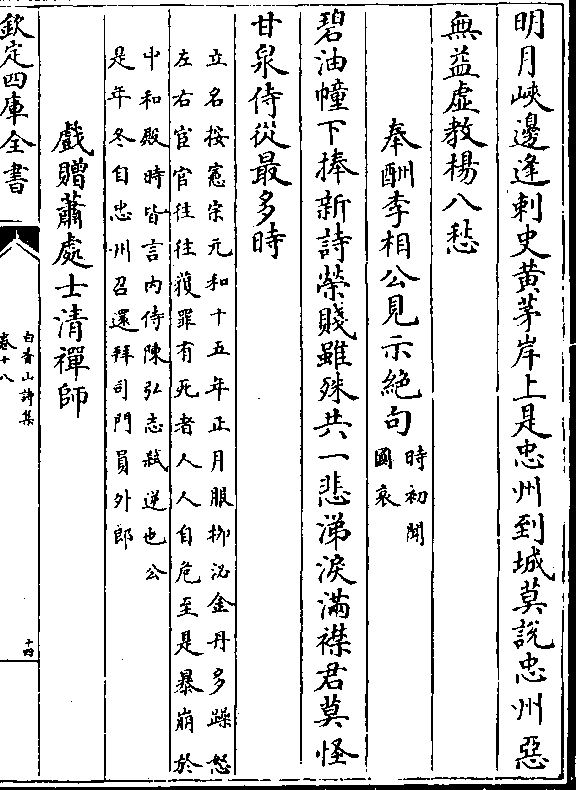 明月峽邊逢刺史黄茅岸上是忠州到城莫說忠州惡
無益虚教楊八愁
奉酬李相公見示絶句時初聞
國哀
碧油幢下捧新詩榮賤雖殊共一悲涕淚滿襟君莫怪
甘泉侍從最多時
立名按憲宗元和十五年正月服柳泌金丹多躁怒
左右宦官往往獲罪有死者人人自危至是暴崩於
中和殿時皆言内侍陳弘志弑逆也公
是年冬自忠州召還拜司門員外郎
戲贈蕭處士清禪師
欽定四庫全書
白香山詩集
卷十八
十四